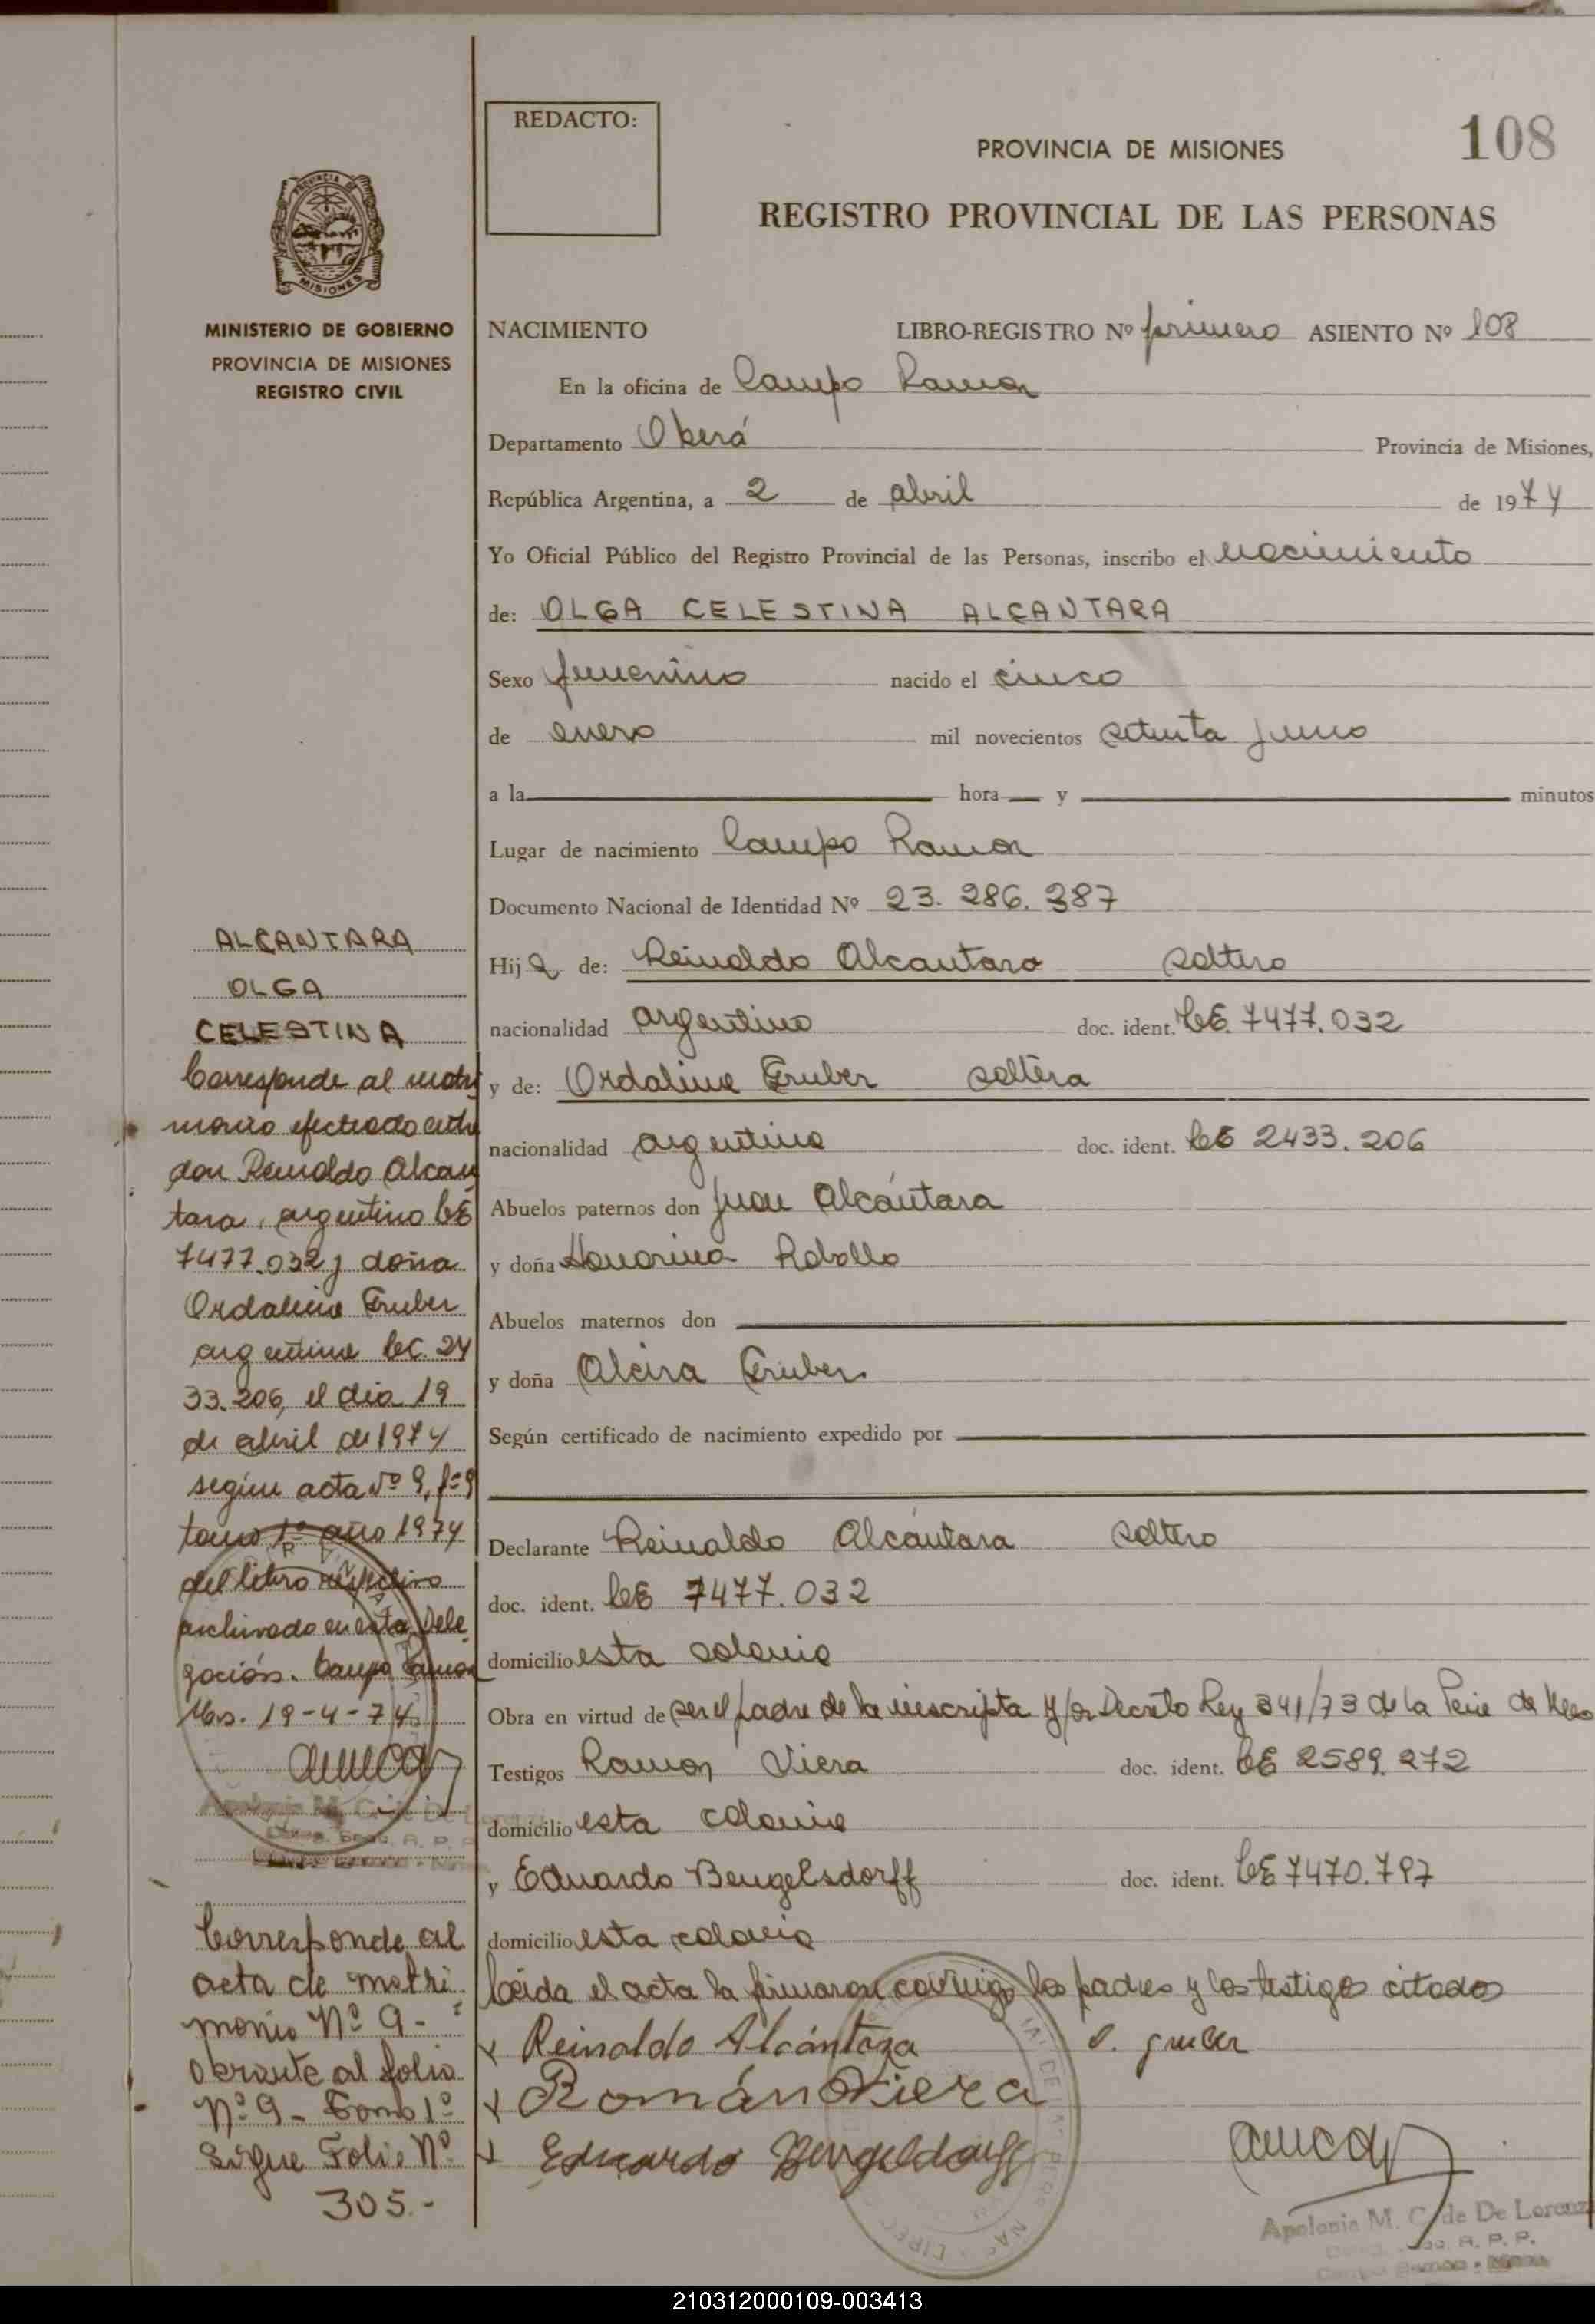 REDACTO:
PROVINCIA DE MISIONES
108
REGISTRO PROVINCIAL DE LAS PERSONAS
PROVINCIA DE
MISIONES
MINISTERIO DE GOBIERNO
PROVINCIA DE MISIONES
REGISTRO CIVIL
NACIMIENTO LIBRO-REGISTRO Nº primero ASIENTO Nº 108
En la oficina de Campo Ramon
Departamento Oberá Provincia de Misiones,
República Argentina, a 2 de abril de 1974
Yo Oficial Público del Registro Provincial de las Personas, inscribo el nacimiento
de: OLGA CELESTINA ALCANTARA
Sexo femenino nacido el cinco
de enero mil novecientos setenta y uno
a la hora y minutos
Lugar de nacimiento Campo Ramon
Documento Nacional de Identidad Nº 23.286.387
Hija de: Reinaldo Alcantara soltero
nacionalidad argentino doc. ident. LE. 7477.032
y de: Ordalina Gruber soltera
nacionalidad argentina doc. ident. LC 2433.206
Abuelos paternos don Juan Alcántara
y doña Honorina Rabollo
Abuelos maternos don
y doña Alcira Gruber
Según certificado de nacimiento expedido por
Declarante Reinaldo Alcántara soltero
doc. ident. LE 7477.032
domicilio esta colonia
Obra en virtud de ser el padre de la inscripta y/o Decreto Ley 341/73 de la Pcia de
Testigos Ramon Viera doc. ident. LE 2589.272
domicilio esta colonia
y Eduardo Bengelsdorff doc. ident. LE 7470.797
domicilio esta colonia
Leida el acta la firmaron conmigo los padres y los testigos citados
x Reinaldo Alcántara O. gruber
x Román Viera
x Eduardo Bengeldorff
Apolonia M. C. de De Lorenzi
R. P. P.
ALCANTARA
OLGA
CELESTINA
Corresponde al matri
monio efectuado entre
don Reinaldo Alcan
tara, argentino LE
7477.032 y doña
Ordalina Gruber
argentina LC. 24
33.206, el dia 19
de abril de 1974
según acta Nº 9, fº 9
tomo 1º año 1974
del libro respectivo
archivado en esta Dele
gación. Campo Ramon
Ms. 19-4-74
Corresponde al
acta de matri
monio Nº 9-
obrante al folio
Nº 9- Tomo 1º
Sigue Folio Nº
305.-
210312000109-003413